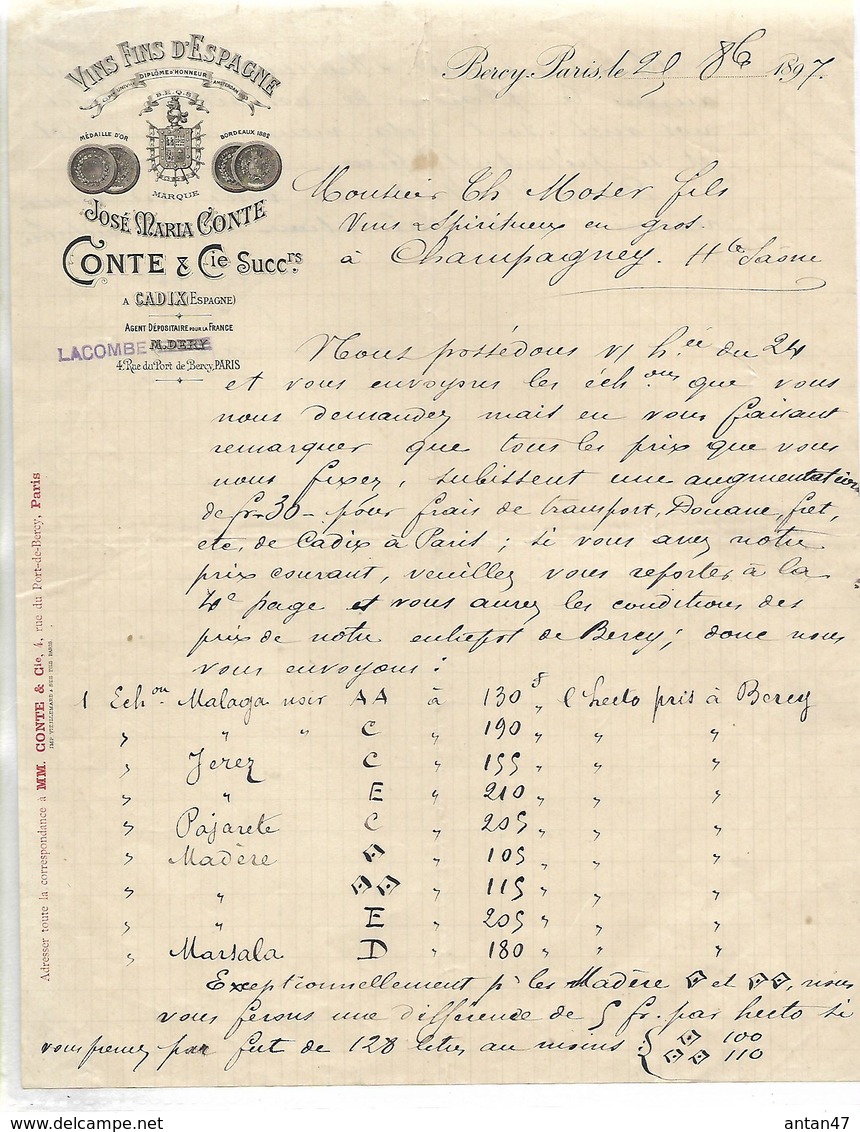 VINS FINS D'ESPAGNE
DIPLÔME D'HONNEUR
AMSTERDAM
B.E.Q.S.
MÉDAILLE D'OR
BORDEAUX 1882
MARQUE
JOSÉ MARIA CONTE
CONTE & Cie SUCCrs
A CADIX (ESPAGNE)
AGENT DÉPOSITAIRE POUR LA FRANCE
M. DERY
LACOMBE
4, Rue du Port de Bercy, PARIS
Bercy-Paris, le 25 8bre 1897.
Monsieur Th Moser fils
Vins & Spiritueux en gros.
à Champagney. Hte Saône
Nous possédons v/ h.ée du 24
et vous envoyons les échons que vous
nous demandez mais en vous faisant
remarquer que tous les prix que vous
nous fixez, subissent une augmentation
de fr 30 - pour frais de transport, Douane, fret,
etc, de Cadix à Paris ; si vous avez notre
prix courant, veuillez vous reporter à la
4e page et vous aurez les conditions des
prix de notre entrepot de Bercy ; donc nous
vous envoyons :
1 Echon Malaga noir AA à 130 f l'hecto pris à Bercy
" " " C " 190 " " "
" Jerez C " 155 " " "
" " E " 210 " " "
" Pajarete C " 205 " " "
" Madère " 105 " " "
" " " 115 " " "
" " E " 205 " " "
" Marsala D " 180 " " "
Exceptionnellement pr les Madère et , nous
vous ferons une différence de 5 fr. par hecto si
vous prenez par fut de 128 litres au moins : 100
110
Adresser toute la correspondance à MM. CONTE & Cie, 4, rue du Port-de-Bercy, Paris
antan47